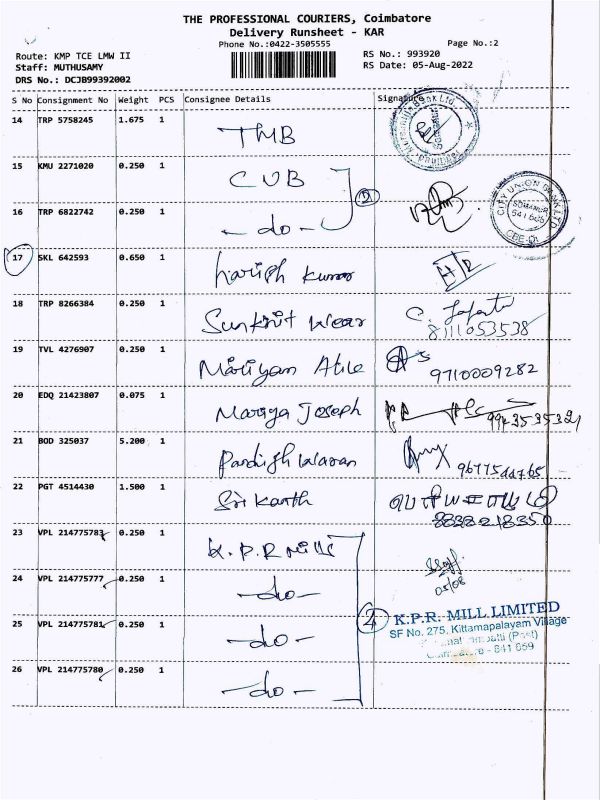 THE PROFESSIONAL COURIERS, Coimbatore
Delivery Runsheet - KAR
Phone No.:0422-3505555
Page No.:2
Route: KMP TCE LMW II
Staff: MUTHUSAMY
DRS No.: DCJB99392002
RS No.: 993920
RS Date: 05-Aug-2022
S No Consignment No Weight PCS Consignee Details Signature
14 TRP 5758245 1.675 1 TMB
15 KMU 2271020 0.250 1 CUB
16 TRP 6822742 0.250 1 -do-
CITY UNION BANK LTD
CBE
17 SKL 642593 0.650 1 harish kumar
18 TRP 8266384 0.250 1 Sunknit Wear
8111053538
19 TVL 4276907 0.250 1
9710009282
20 EDQ 21423807 0.075 1 Mariya Joseph
9943535321
21 BOD 325037 5.200 1
9677544765
22 PGT 4514430 1.500 1 Sri Kanth
பெரியசாமி
8838218350
23 VPL 214775783 0.250 1 K.P.R Mills
24 VPL 214775777 0.250 1 -do-
05/08
25 VPL 214775781 0.250 1 -do-
2
K.P.R. MILL LIMITED
SF No. 275, Kittampalayam Village
(Post)
641 659
26 VPL 214775780 0.250 1 -do-